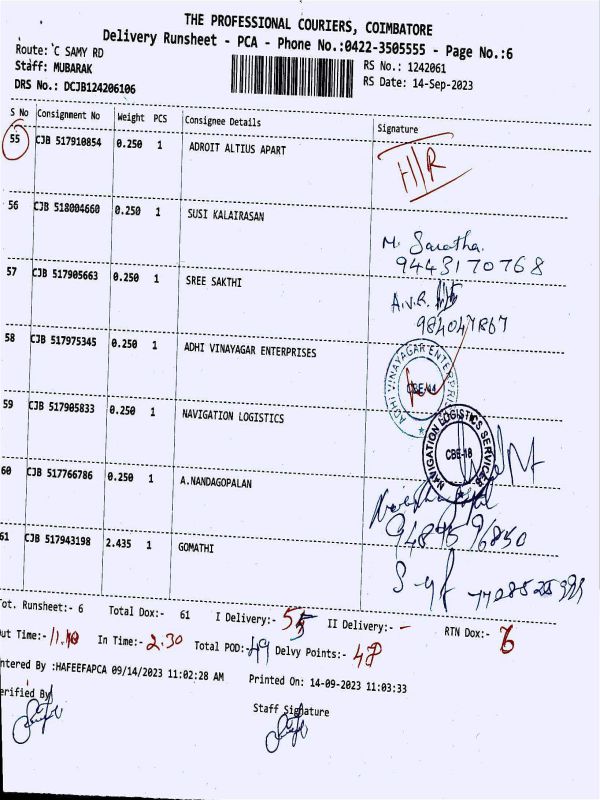 THE PROFESSIONAL COURIERS, COIMBATORE
Delivery Runsheet - PCA - Phone No.:0422-3505555 - Page No.:6
Route: C SAMY RD
RS No.: 1242061
Staff: MUBARAK
RS Date: 14-Sep-2023
DRS No.: DCJB124206106
S No Consignment No Weight PCS Consignee Details Signature
55 CJB 517910854 0.250 1 ADROIT ALTIUS APART
56 CJB 518004660 0.250 1 SUSI KALAIRASAN
M. Saratha.
9443170768
57 CJB 517905663 0.250 1 SREE SAKTHI
A.V.R.
58 CJB 517975345 0.250 1 ADHI VINAYAGAR ENTERPRISES
ADHI VINAYAGAR ENTERPRISES
59 CJB 517905833 0.250 1 NAVIGATION LOGISTICS
NAVIGATION LOGISTICS SERVICES
CBE-18
60 CJB 517766786 0.250 1 A.NANDAGOPALAN
61 CJB 517943198 2.435 1 GOMATHI
Tot. Runsheet:- 6 Total Dox:- 61 I Delivery:- 55 II Delivery:- - RTN Dox:- 6
Out Time:- 11.10 In Time:- 2.30 Total POD:- 49 Delvy Points:- 48
ntered By :HAFEEFAPCA 09/14/2023 11:02:28 AM Printed On: 14-09-2023 11:03:33
erified By
Staff Signature